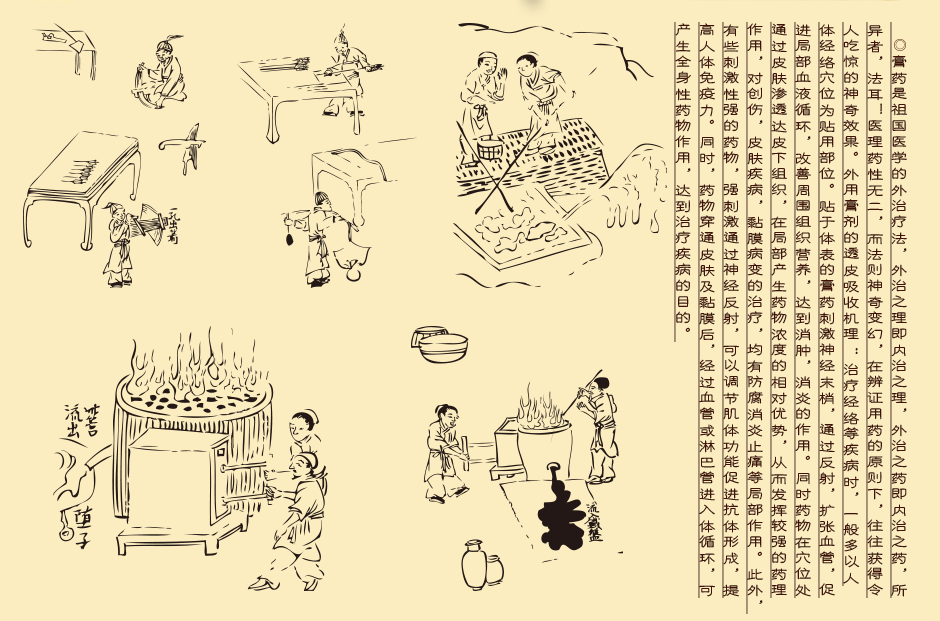 ◎膏药是祖国医学的外治疗法，外治之理即内治之理，外治之药即内治之药，所
异者，法耳！医理药性无二，而法则神奇变幻，在辨证用药的原则下，往往获得令
人吃惊的神奇效果。外用膏剂的透皮吸收机理：治疗经络等疾病时，一般多以人
体经络穴位为贴用部位。贴于体表的膏药刺激神经末梢，通过反射，扩张血管，促
进局部血液循环，改善周围组织营养，达到消肿，消炎的作用。同时药物在穴位处
通过皮肤渗透达皮下组织，在局部产生药物浓度的相对优势，从而发挥较强的药理
作用，对创伤，皮肤疾病，黏膜病变的治疗，均有防腐消炎止痛等局部作用。此外，
有些刺激性强的药物，强刺激通过神经反射，可以调节肌体功能促进抗体形成，提
高人体免疫力。同时，药物穿通皮肤及黏膜后，经过血管或淋巴管进入体循环，可
产生全身性药物作用，达到治疗疾病的目的。
流出
子